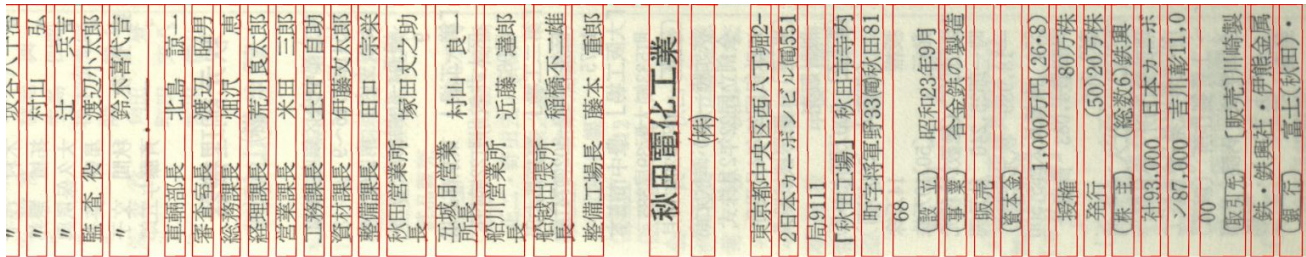 〃 谷八十治
〃 村山 弘
〃 辻 兵吉
監査役 渡辺小太郎
〃 鈴木喜代吉
車輛部長 北島 諒一
審査室長 渡辺 昭男
総務課長 畑沢 恵
経理課長 荒川良太郎
営業課長 米田 三郎
工務課長 土田 自助
資材課長 伊藤文太郎
整備課長 田口 宗栄
秋田営業所長 塚田丈之助
五城目営業所長 村山 良一
船川営業所長 近藤 達郎
船越出張所長 稲橋不二雄
整備工場長 藤本 重郎
秋田電化工業
㈱
東京都中央区西八丁堀2-
2日本カーボンビル電551
局9111
「秋田工場」 秋田市寺内
町字将軍野33電秋田81
68
(設 立) 昭和23年9月
(事 業) 合金鉄の製造
販売
(資本金)
1,000万円(26・8)
授権 80万株
発行 (50)20万株
(株 主) (総数6)鉄興
社93,000 日本カーボ
ン87,000 吉川彰11,0
00
(取引先) 〔販売〕川崎製
鉄・鉄興社・伊熊金属
(銀 行) 富士(秋田)・